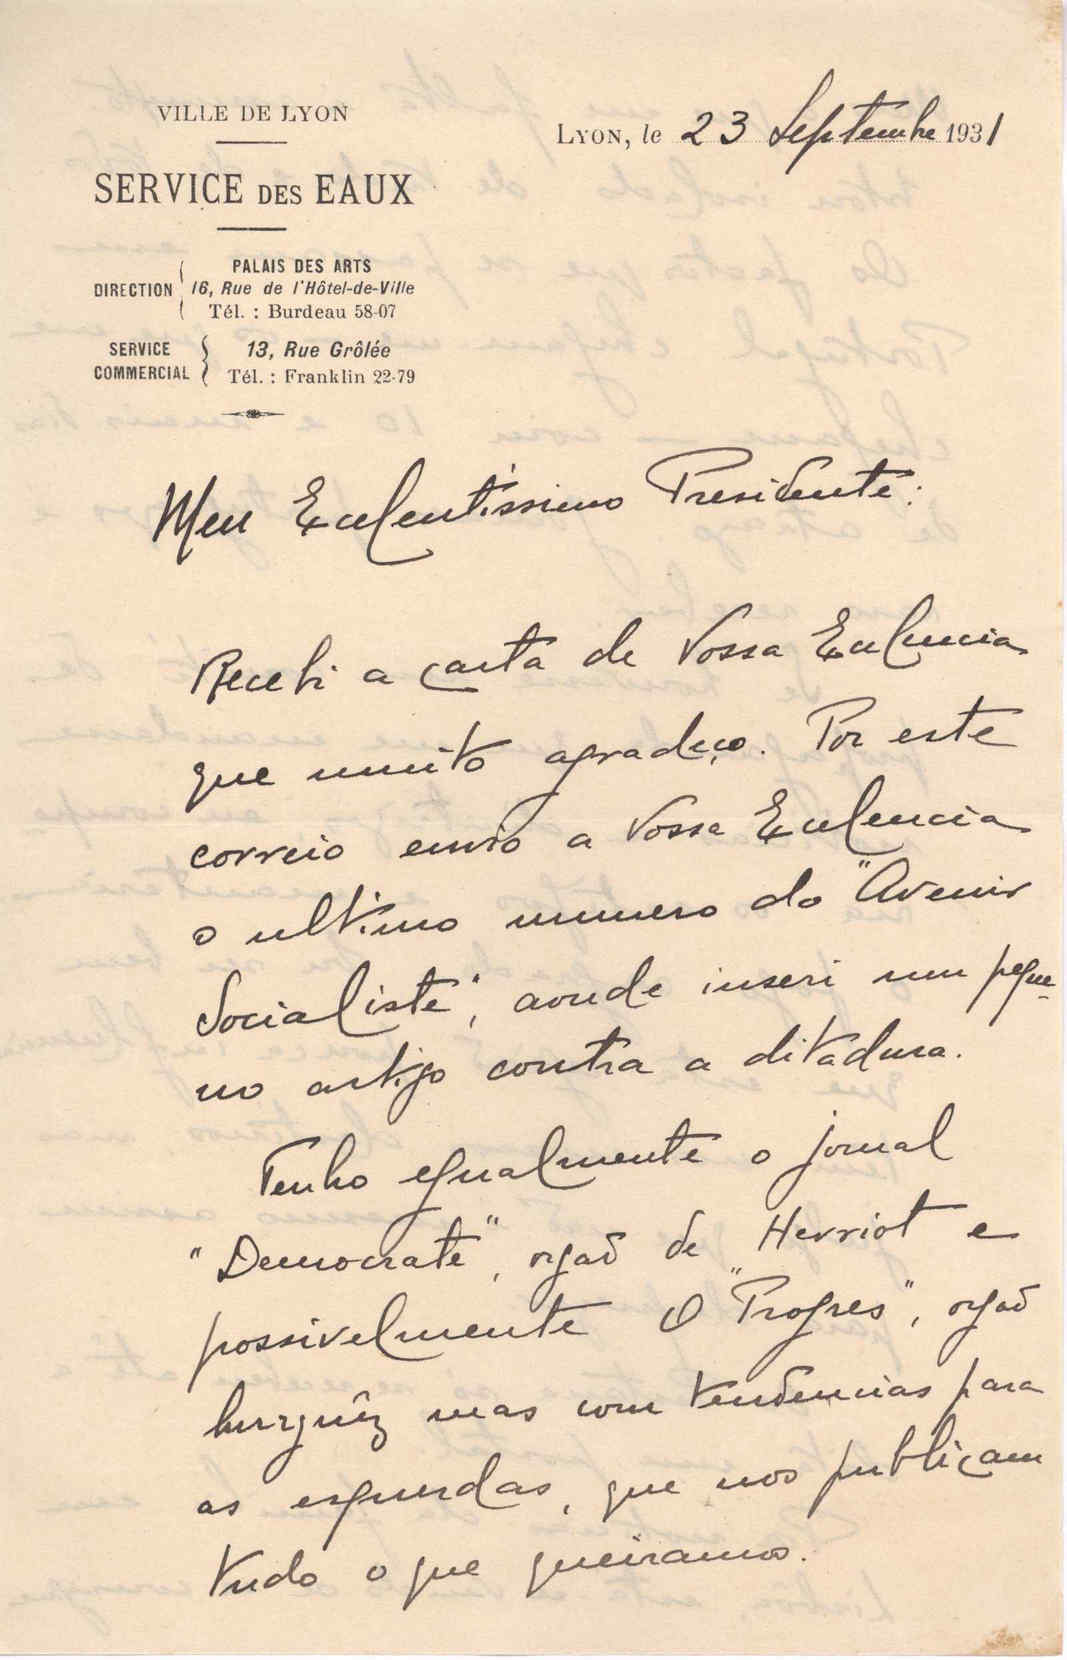 VILLE DE LYON
LYON, le 23 Septembre 1931
SERVICE DES EAUX
DIRECTION
PALAIS DES ARTS
16, Rue de l'Hôtel-de-Ville
Tél. : Burdeau 58-07
SERVICE COMMERCIAL
13, Rue Grôlée
Tél. : Franklin 22-79
Meu Excelentissimo Presidente:
Recebi a carta de Vossa Excelencia
que muito agradeço. Por este
correio envio a Vossa Excelencia
o ultimo numero do "Avenir
Socialiste", aonde inseri um peque-
no artigo contra a ditadura.
Tenho egualmente o jornal
"Democrate", orgaõ de Herriot e
possivelmente O "Progres", orgaõ
burguêz mas com tendencias para
as esquerdas, que nos publicam
tudo o que queiramos.